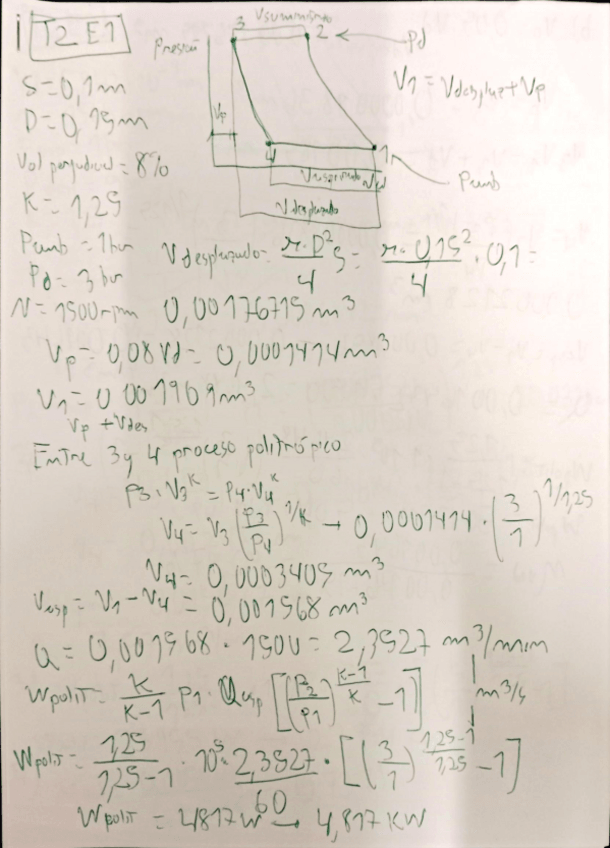 T2 E1
S = 0,1m
D = 0,15m
Vol perjudicial = 8%
K = 1,25
Pamb = 1bar
Pd = 3 bar
N = 1500rpm
Vsuministro
Presión
3
2
Pd
V1 = Vdesplaz + Vp
Vp
4
1
Pamb
Vaspirado
Vdesplazado
Vdesplazado = π·D²/4 S = π·0,15²/4 · 0,1 =
0,00176715 m³
Vp = 0,08Vd = 0,0001414 m³
V1 = 0,001909 m³
Vp + Vdes
Entre 3 y 4 proceso politrópico
P3·V3^K = P4·V4^K
V4 = V3 (P3/P4)^1/K → 0,0001414 · (3/1)^1/1,25
V4 = 0,0003405 m³
Vasp = V1 - V4 = 0,001568 m³
Q = 0,001568 · 1500 = 2,3527 m³/min
m³/s
Wpolit = K/K-1 P1 · Qasp [(P2/P1)^K-1/K - 1]
Wpolit = 1,25/1,25-1 · 10⁵ · 2,3527/60 · [(3/1)^1,25-1/1,25 - 1]
Wpolit = 4817 W → 4,817 KW